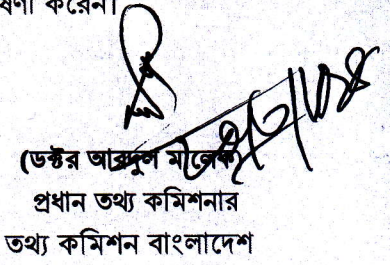 ষণা করেন।
(ডক্টর আবদুল মালেক)
প্রধান তথ্য কমিশনার
তথ্য কমিশন বাংলাদেশ